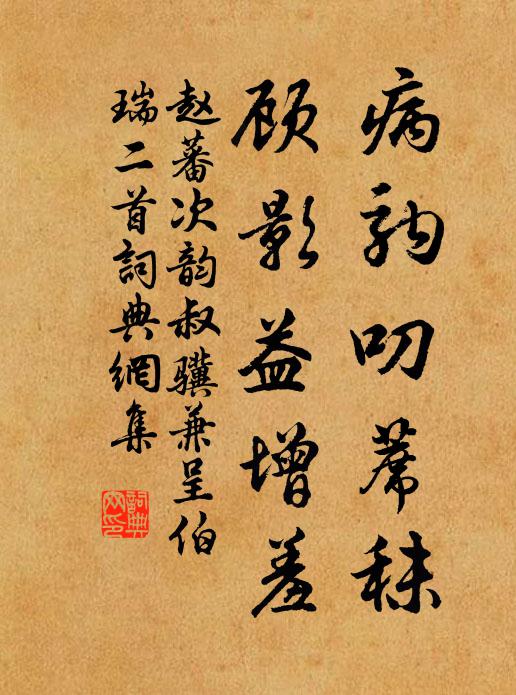 病驹叨蓆秣
顾影益增羞
赵蕃次韵叔骥兼呈伯
瑞二首詞典網集
詞典網印